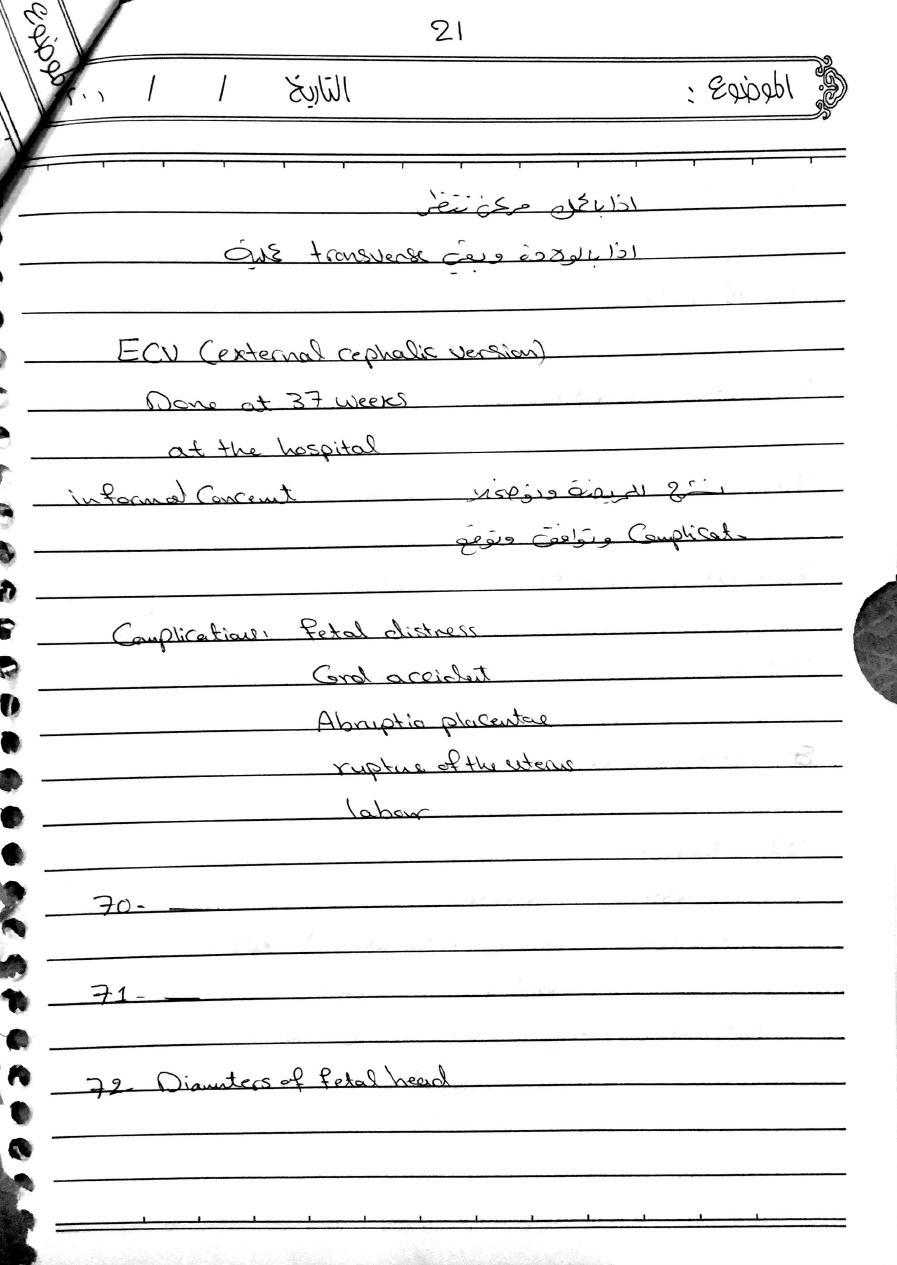 21
الموضوع
الموضوع : التاريخ / / ٢٠٠١
اذا بالحمل ممكن ننتظر
اذا بالولادة وبقت transverse عملية
ECV (external cephalic version)
Done at 37 weeks
at the hospital
informal Concent نشرح للمريضة ونوضح
Complicat. وتوافق وتوقع
Complications: Fetal distress
Cord accident
Abruptio placentae
rupture of the uterus
labour
70- —
71- —
72- Diameters of fetal head